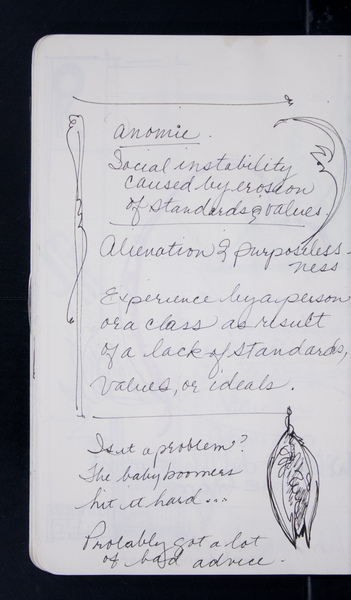 anomie.
Social instability
caused by erosion
of standards & values.
Alienation & purposeless-
ness
Experience by a person
or a class as result
of a lack of standards,
values, or ideals.
Is it a problem?
The baby boomers
hit it hard...
Probably got a lot
of bad advice.